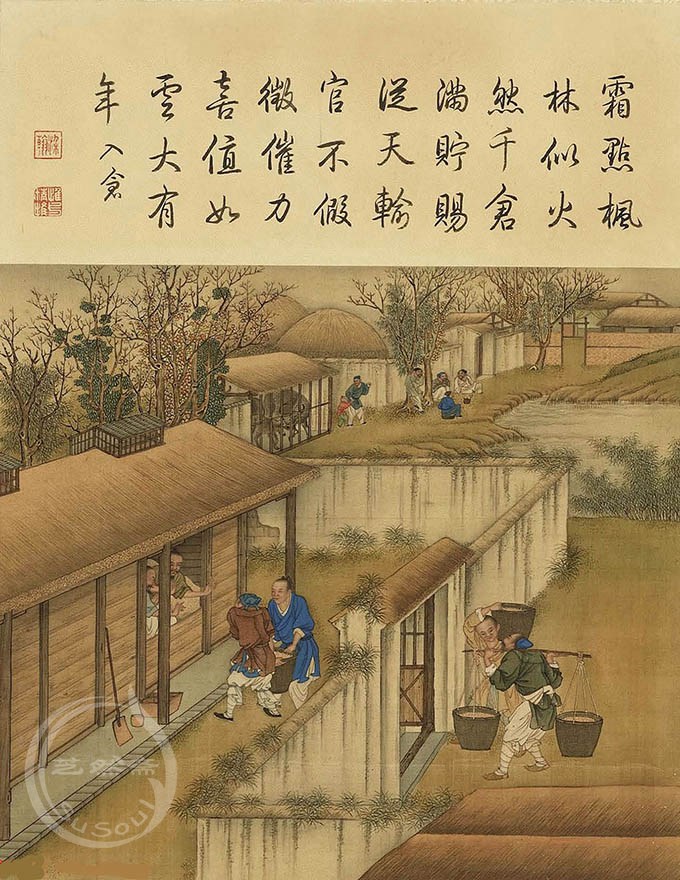 霜點楓
林似火
然千倉
滿貯賜
從天輸
官不假
徵催力
喜值如
雲大有
年 入倉
艺然斋